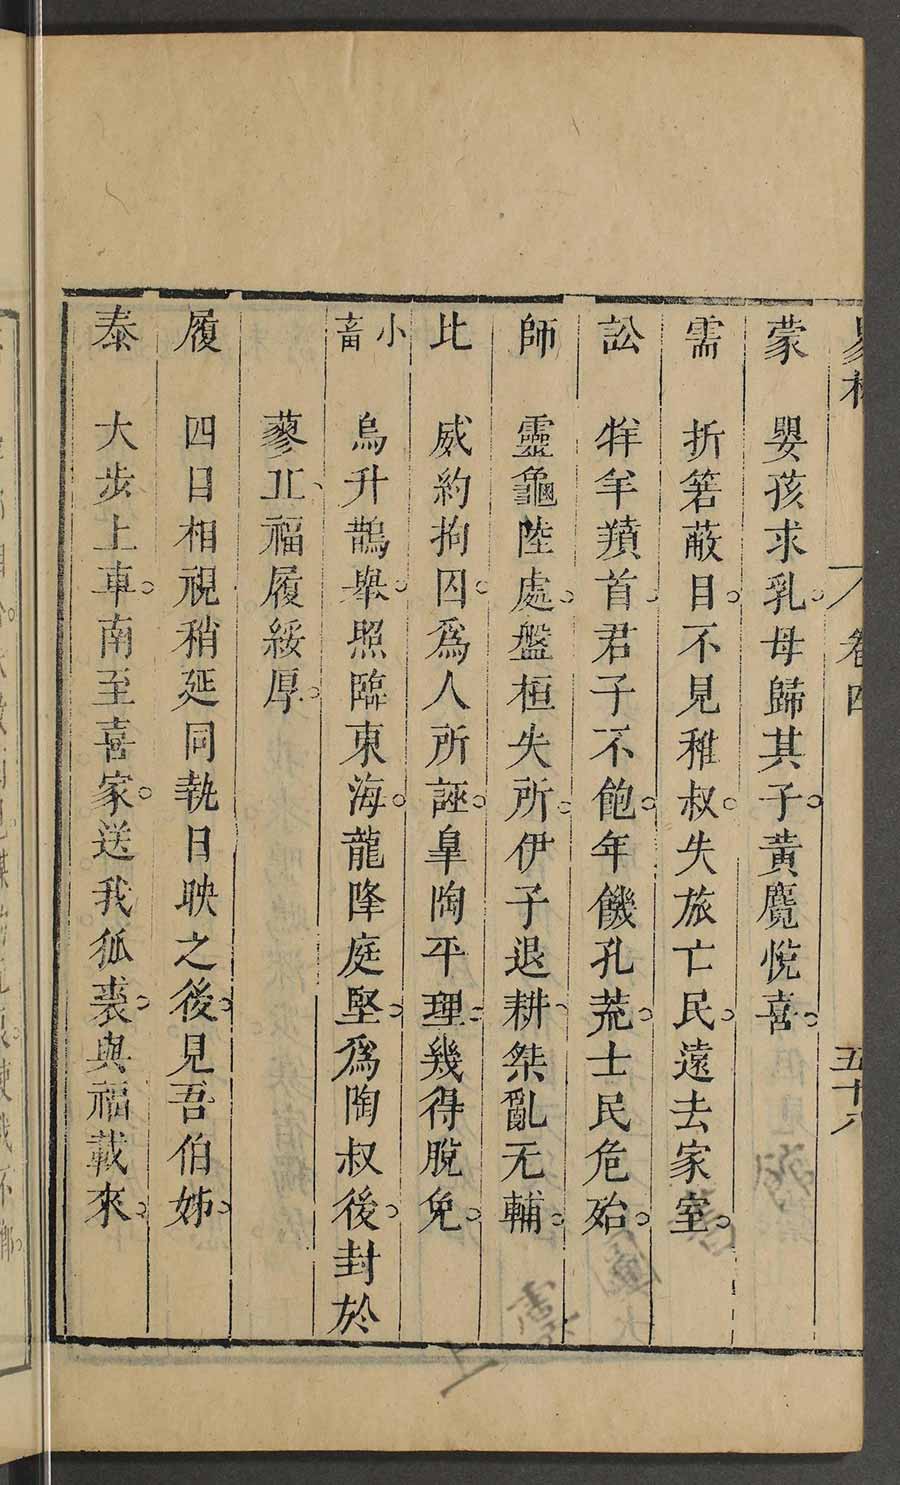 易林 卷四 五十八
蒙 嬰孩求乳。母歸其子。黃麑悅喜。
需 折箬蔽目。不見稚叔。失旅亡民。遠去家室。
訟 牂羊羵首。君子不飽。年饑孔荒。士民危殆。
師 靈龜陸處。盤桓失所。伊子退耕。桀亂无輔。
比 威約拘囚。爲人所誣。皐陶平理。幾得脫免。
小畜 烏升鵲舉。照臨東海。龍降庭堅。爲陶叔後。封於
蓼丘、福履綏厚。
履 四目相視稍延同執日昳之後。見吾伯姊。
泰 大步上車。南至喜家。送我狐裘。與福載來。